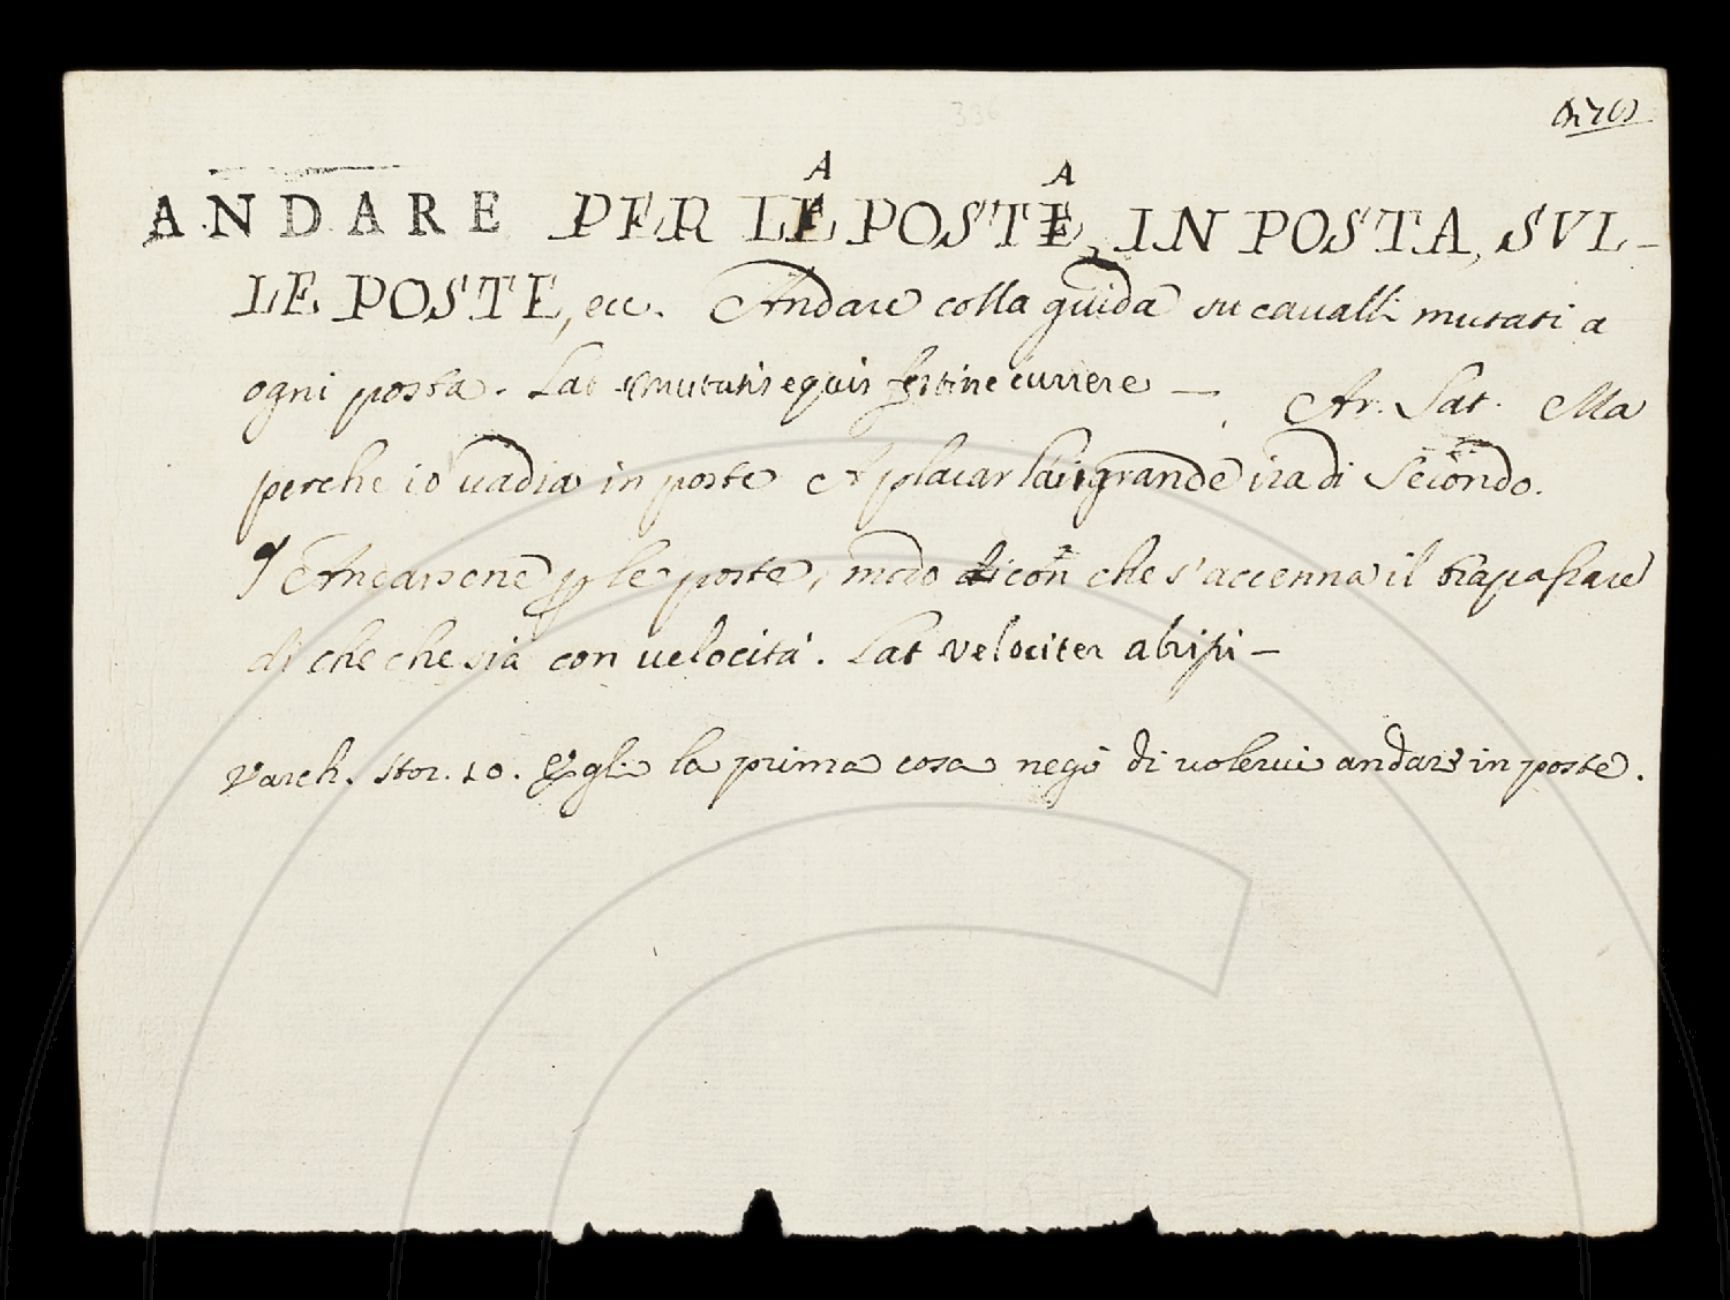 336
ANDARE PER LA POSTA, IN POSTA, SUL-
LE POSTE, ecc. Andare colla guida su cavalli mutati a
ogni posta. Lat mutatis equis festine currere — Ar. Sat. Ma
perche io vadia in poste A placar la grande ira di Secondo.
¶ Andarsene p le poste, modo con che s'accenna il trapassare
di che che sia con velocità. Lat velociter abripi —
Varch. stor. 10. Egli la prima cosa negò di volervi andare in poste.